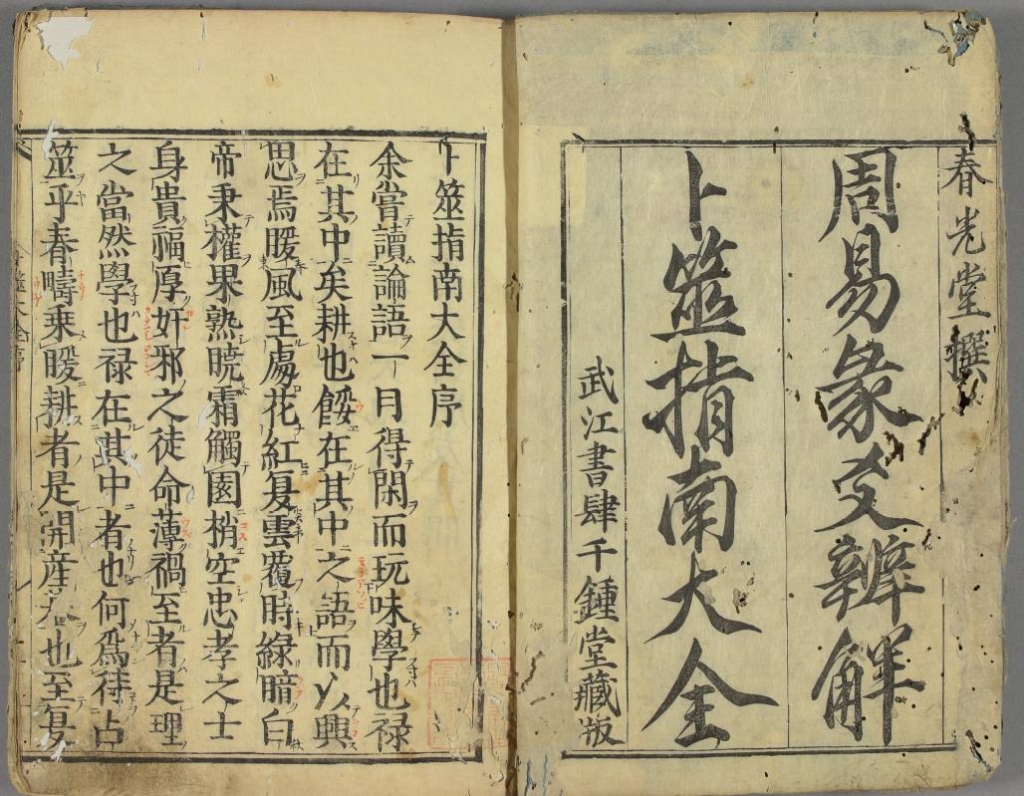 春光堂撰
周易彖爻辨解
卜筮指南大全
武江書肆千鍾堂藏版
卜筮指南大全序
余嘗讀論語一日得閑而玩味學也禄
在其中矣耕也餒在其中之語而以興
思焉暖風至處花紅夏雲覆時緑暗白
帝秉權果熟曉霜觸園梢空忠孝之士
身貴福厚奸邪之徒命薄禍至者是理
之當然學也禄在其中者也何爲待占
筮乎春疇乗暖耕者是開産也至夏